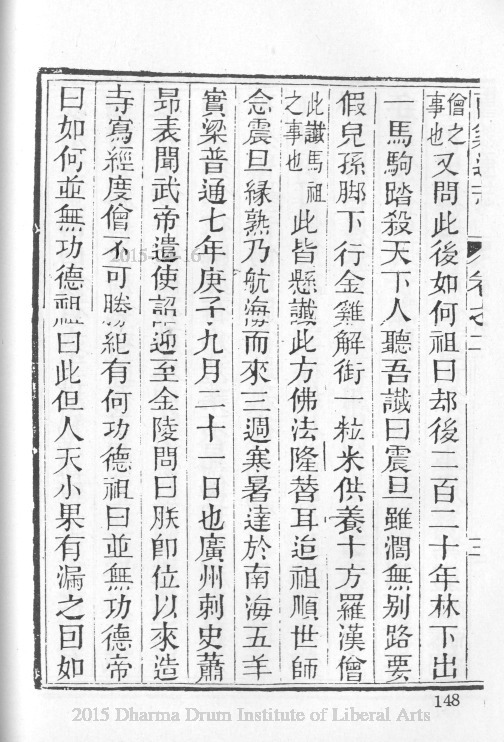 僧之
事也又問此後如何祖曰却後二百二十年林下出
一馬駒踏殺天下人聽吾讖曰震旦雖濶無别路要
假兒孫脚下行金雞解銜一粒米供養十方羅漢僧
此讖馬祖
之事也此皆懸讖此方佛法隆替耳迨祖順世師
念震旦緣熟乃航海而來三週寒暑達於南海五羊
實梁普通七年庚子九月二十一日也廣州刺史蕭
昻表聞武帝遣使詔迎至金陵問曰朕卽位以來造
寺寫經度僧不可勝紀有何功德祖曰並無功德帝
曰如何並無功德祖曰此但人天小果有漏之曰如
148
2015 Dharma Drum Institute of Liberal Arts